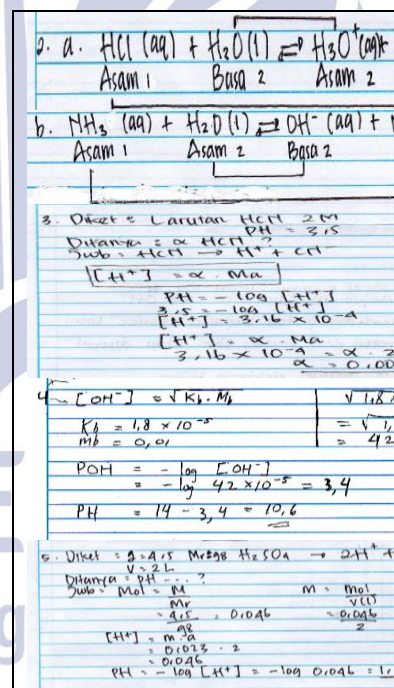 2. a. HCl (aq) + H₂O (l) ⇌ H₃O⁺ (aq) +
Asam 1 Basa 2 Asam 2
b. NH₃ (aq) + H₂O (l) ⇌ OH⁻ (aq) +
Asam 1 Asam 2 Basa 2
3. Diket : Larutan HCN 2M
PH = 3,5
Ditanya : α HCN ?
Jwb : HCN → H⁺ + CN⁻
[H⁺] = α . Ma
PH = - log [H⁺]
3,5 = - log [H⁺]
[H⁺] = 3,16 × 10⁻⁴
[H⁺] = α . Ma
3,16 × 10⁻⁴ = α . 2
α = 0,00
4. [OH⁻] = √Kb . Mb √1,8
Kb = 1,8 × 10⁻⁵ = √1,
mb = 0,01 = 42
POH = - log [OH⁻]
= - log 42 × 10⁻⁵ = 3,4
PH = 14 - 3,4 = 10,6
5. Diket = g = 4,5 Mr = 98 H₂SO₄ → 2H⁺ +
V = 2L
Ditanya = PH ... ?
Jwb = Mol = M/Mr M = mol/V(l)
= 4,5/98 = 0,046 = 0,046/2
[H⁺] = m . a
= 0,023 . 2
= 0,046
PH = - log [H⁺] = - log 0,046 = 1,